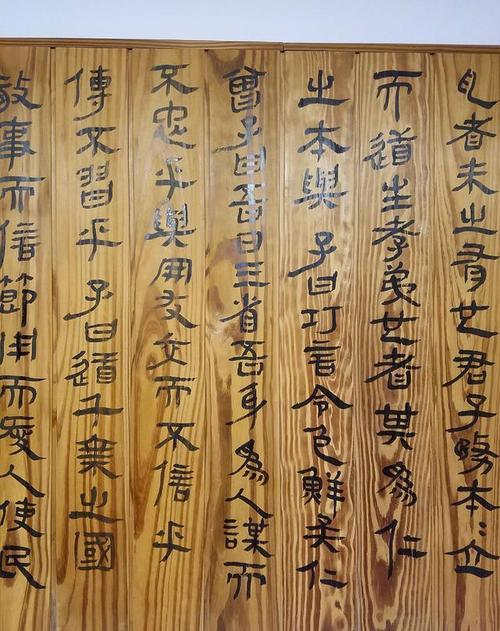 者未之有也君子務本〻立
而道生孝弟也者其為仁
之本與 子曰巧言令色鮮矣仁
曾子曰吾日三省吾身為人謀而
不忠乎與朋友交而不信乎
傳不習乎 子曰道千乘之國
敬事而信節用而愛人使民